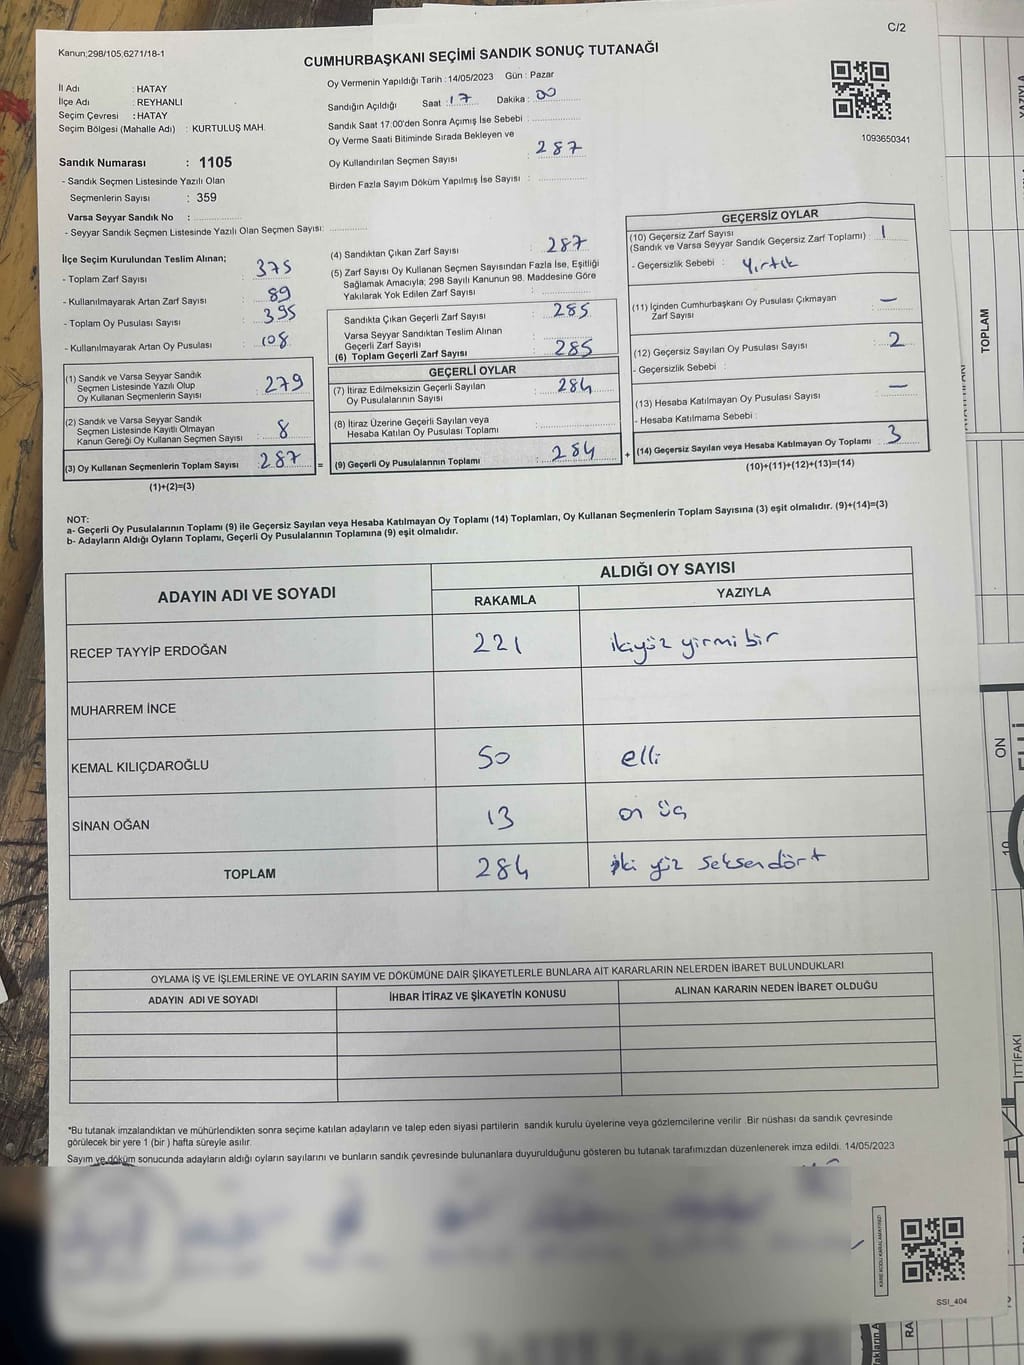 C/2
Kanun;298/105,6271/18-1
CUMHURBAŞKANI SEÇİMİ SANDIK SONUÇ TUTANAĞI
İl Adı : HATAY
İlçe Adı : REYHANLI
Seçim Çevresi : HATAY
Seçim Bölgesi (Mahalle Adı) : KURTULUŞ MAH.
Oy Vermenin Yapıldığı Tarih : 14/05/2023 Gün : Pazar
Sandığın Açıldığı Saat : 17 Dakika : 00
Sandık Saat 17:00'den Sonra Açımış İse Sebebi :
Oy Verme Saati Bitiminde Sırada Bekleyen ve
Oy Kullandırılan Seçmen Sayısı : 287
Birden Fazla Sayım Döküm Yapılmış İse Sayısı :
1093650341
Sandık Numarası : 1105
- Sandık Seçmen Listesinde Yazılı Olan
Seçmenlerin Sayısı : 359
Varsa Seyyar Sandık No :
- Seyyar Sandık Seçmen Listesinde Yazılı Olan Seçmen Sayısı:
İlçe Seçim Kurulundan Teslim Alınan;
- Toplam Zarf Sayısı : 375
- Kullanılmayarak Artan Zarf Sayısı : 89
- Toplam Oy Pusulası Sayısı : 395
- Kullanılmayarak Artan Oy Pusulası : 108
(1) Sandık ve Varsa Seyyar Sandık
Seçmen Listesinde Yazılı Olup
Oy Kullanan Seçmenlerin Sayısı : 279
(2) Sandık ve Varsa Seyyar Sandık
Seçmen Listesinde Kayıtlı Olmayan
Kanun Gereği Oy Kullanan Seçmen Sayısı : 8
(3) Oy Kullanan Seçmenlerin Toplam Sayısı : 287 =
(1)+(2)=(3)
(4) Sandıktan Çıkan Zarf Sayısı : 287
(5) Zarf Sayısı Oy Kullanan Seçmen Sayısından Fazla İse, Eşitliği
Sağlamak Amacıyla; 298 Sayılı Kanunun 98. Maddesine Göre
Yakılarak Yok Edilen Zarf Sayısı :
Sandıkta Çıkan Geçerli Zarf Sayısı : 285
Varsa Seyyar Sandıktan Teslim Alınan
Geçerli Zarf Sayısı :
(6) Toplam Geçerli Zarf Sayısı : 285
GEÇERLİ OYLAR
(7) İtiraz Edilmeksizin Geçerli Sayılan
Oy Pusulalarının Sayısı : 284
(8) İtiraz Üzerine Geçerli Sayılan veya
Hesaba Katılan Oy Pusulası Toplamı :
(9) Geçerli Oy Pusulalarının Toplamı : 284 +
GEÇERSİZ OYLAR
(10) Geçersiz Zarf Sayısı
(Sandık ve Varsa Seyyar Sandık Geçersiz Zarf Toplamı) : 1
- Geçersizlik Sebebi : Yırtık
(11) İçinden Cumhurbaşkanı Oy Pusulası Çıkmayan
Zarf Sayısı : —
(12) Geçersiz Sayılan Oy Pusulası Sayısı : 2
- Geçersizlik Sebebi :
(13) Hesaba Katılmayan Oy Pusulası Sayısı : —
- Hesaba Katılmama Sebebi :
(14) Geçersiz Sayılan veya Hesaba Katılmayan Oy Toplamı : 3
(10)+(11)+(12)+(13)=(14)
NOT:
a- Geçerli Oy Pusulalarının Toplamı (9) ile Geçersiz Sayılan veya Hesaba Katılmayan Oy Toplamı (14) Toplamları, Oy Kullanan Seçmenlerin Toplam Sayısına (3) eşit olmalıdır. (9)+(14)=(3)
b- Adayların Aldığı Oyların Toplamı, Geçerli Oy Pusulalarının Toplamına (9) eşit olmalıdır.
ADAYIN ADI VE SOYADI ALDIĞI OY SAYISI
RAKAMLA YAZIYLA
RECEP TAYYİP ERDOĞAN 221 ikiyüz yirmi bir
MUHARREM İNCE
KEMAL KILIÇDAROĞLU 50 elli
SİNAN OĞAN 13 on üç
TOPLAM 284 iki yüz seksendört
OYLAMA İŞ VE İŞLEMLERİNE VE OYLARIN SAYIM VE DÖKÜMÜNE DAİR ŞİKAYETLERLE BUNLARA AİT KARARLARIN NELERDEN İBARET BULUNDUKLARI
ADAYIN ADI VE SOYADI İHBAR İTİRAZ VE ŞİKAYETİN KONUSU ALINAN KARARIN NEDEN İBARET OLDUĞU
*Bu tutanak imzalandıktan ve mühürlendikten sonra seçime katılan adayların ve talep eden siyasi partilerin sandık kurulu üyelerine veya gözlemcilerine verilir .Bir nüshası da sandık çevresinde
görülecek bir yere 1 (bir ) hafta süreyle asılır.
Sayım ve döküm sonucunda adayların aldığı oyların sayılarını ve bunların sandık çevresinde bulunanlara duyurulduğunu gösteren bu tutanak tarafımızdan düzenlenerek imza edildi. 14/05/2023
KARE KODU KARALAMAYINIZ!
SSI_404
TOPLAM
YAZIYLA
ON
10
İTTİFAKI
RA